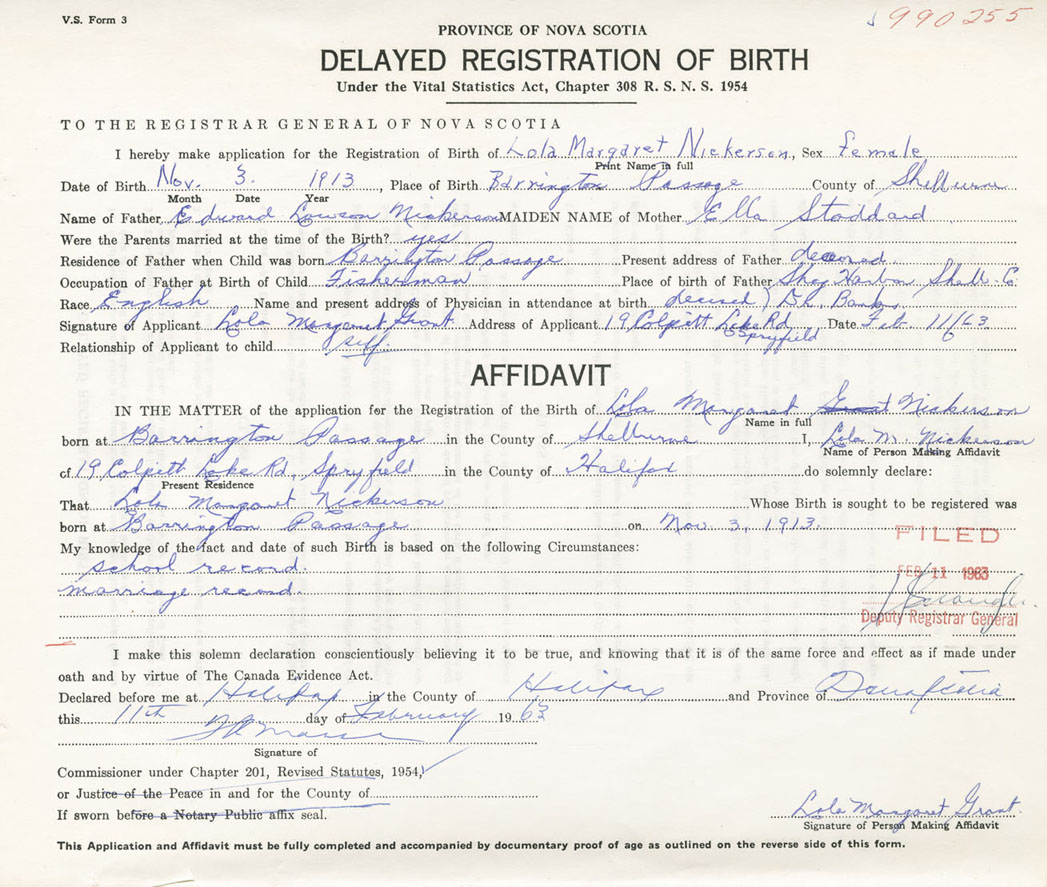 V.S. Form 3
990255
PROVINCE OF NOVA SCOTIA
DELAYED REGISTRATION OF BIRTH
Under the Vital Statistics Act, Chapter 308 R. S. N. S. 1954
TO THE REGISTRAR GENERAL OF NOVA SCOTIA
I hereby make application for the Registration of Birth of Lola Margaret Nickerson, Sex female
Print Name in full
Date of Birth Nov. 3. 1913, Place of Birth Barrington Passage County of Shelburne
Month Date Year
Name of Father Edward Lowson Nickerson MAIDEN NAME of Mother Ella Stoddard
Were the Parents married at the time of the Birth? yes
Residence of Father when Child was born Barrington Passage Present address of Father
Occupation of Father at Birth of Child Fisherman Place of birth of Father Shag Harbor Shell. Co.
Race English Name and present address of Physician in attendance at birth decised
Signature of Applicant Lola Margaret Grant Address of Applicant 19 Colpitt Lake Rd Spryfield Date Feb 11/63
Relationship of Applicant to child self.
AFFIDAVIT
IN THE MATTER of the application for the Registration of the Birth of Lola Margaret Grant Nickerson
Name in full
born at Barrington Passage in the County of Shelburne I, Lola M. Nickerson
Name of Person Making Affidavit
of 19 Colpitt Lake Rd, Spryfield in the County of Halifax do solemnly declare:
Present Residence
That Lola Margaret Nickerson Whose Birth is sought to be registered was
born at Barrington Passage on Nov. 3, 1913.
My knowledge of the fact and date of such Birth is based on the following Circumstances:
school record.
marriage record.
FILED
FEB 11 1963
Deputy Registrar General
I make this solemn declaration conscientiously believing it to be true, and knowing that it is of the same force and effect as if made under
oath and by virtue of The Canada Evidence Act.
Declared before me at Halifax in the County of Halifax and Province of Nova Scotia
this 11th day of February 1963
Signature of
Commissioner under Chapter 201, Revised Statutes, 1954,
or Justice of the Peace in and for the County of
If sworn before a Notary Public affix seal.
Lola Margaret Grant
Signature of Person Making Affidavit
This Application and Affidavit must be fully completed and accompanied by documentary proof of age as outlined on the reverse side of this form.